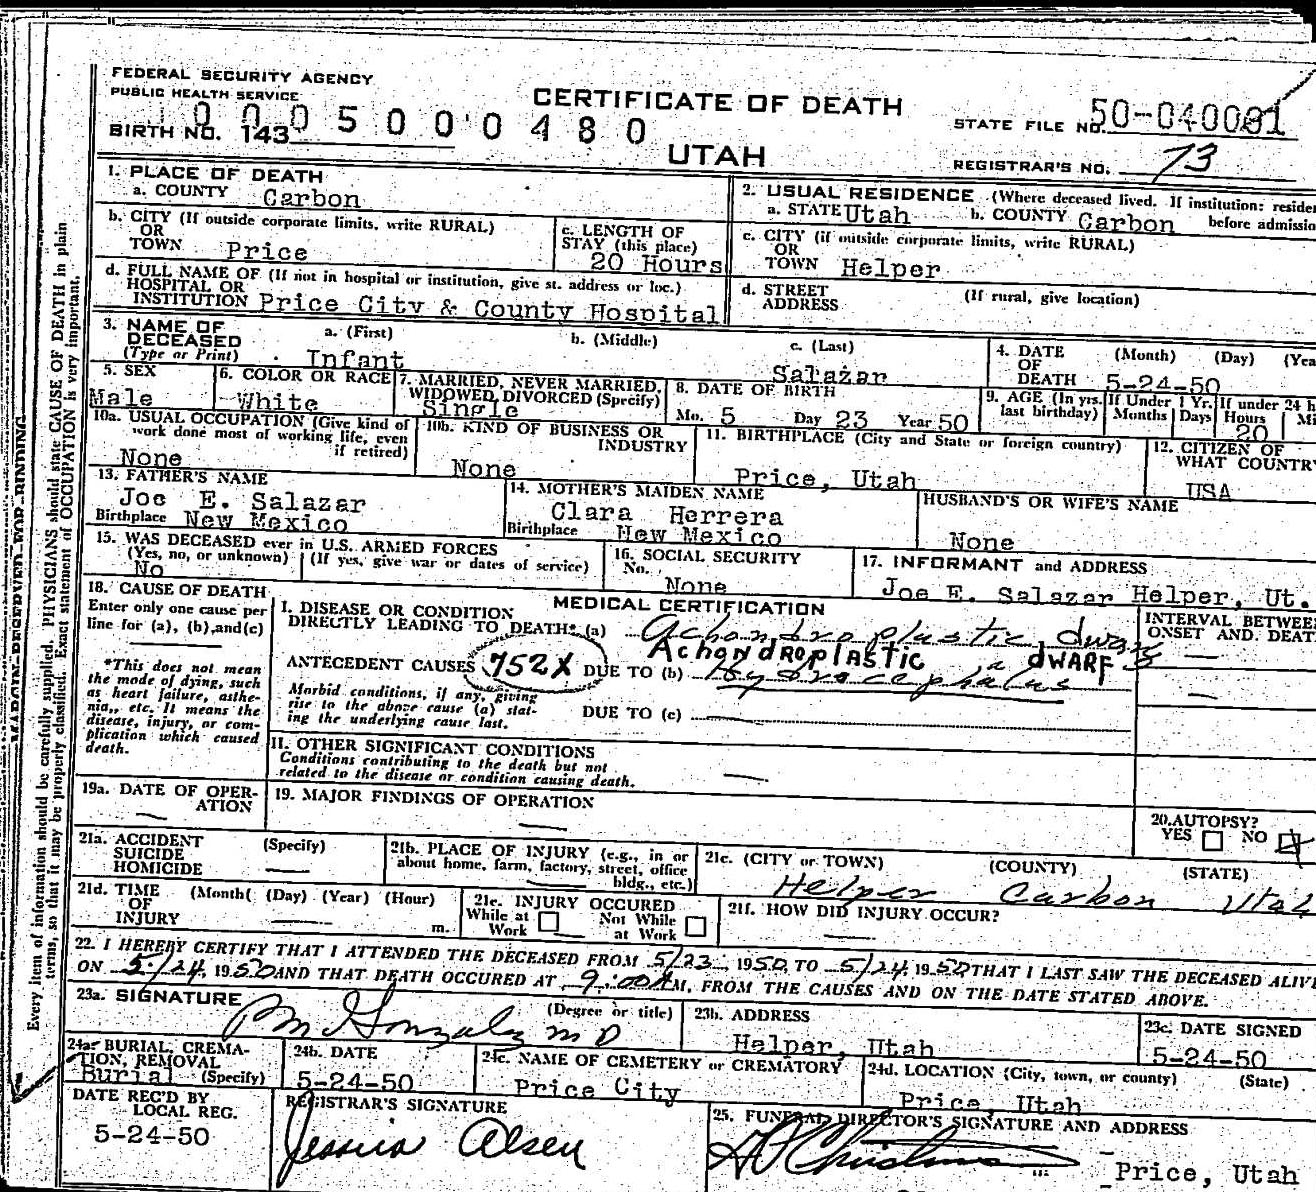 FEDERAL SECURITY AGENCY
PUBLIC HEALTH SERVICE
CERTIFICATE OF DEATH
UTAH
BIRTH NO. 143
0005000480
STATE FILE NO. 50-040081
REGISTRAR'S NO. 73
1. PLACE OF DEATH
a. COUNTY Carbon
b. CITY (If outside corporate limits, write RURAL)
OR
TOWN Price
c. LENGTH OF
STAY (this place)
20 Hours
d. FULL NAME OF (If not in hospital or institution, give st. address or loc.)
HOSPITAL OR
INSTITUTION Price City & County Hospital
2. USUAL RESIDENCE (Where deceased lived. If institution: reside
a. STATE Utah b. COUNTY Carbon before admissio
c. CITY (if outside corporate limits, write RURAL)
OR
TOWN Helper
d. STREET
ADDRESS (If rural, give location)
3. NAME OF
DECEASED
(Type or Print)
a. (First) b. (Middle) c. (Last)
Infant Salazar
4. DATE (Month) (Day) (Yea
OF
DEATH 5-24-50
5. SEX
Male
6. COLOR OR RACE
White
7. MARRIED, NEVER MARRIED,
WIDOWED, DIVORCED (Specify)
Single
8. DATE OF BIRTH
Mo. 5 Day 23 Year 50
9. AGE (In yrs.
last birthday)
If Under 1 Yr.
Months Days
If under 24 h
Hours Mi
20
10a. USUAL OCCUPATION (Give kind of
work done most of working life, even
if retired)
None
10b. KIND OF BUSINESS OR
INDUSTRY
None
11. BIRTHPLACE (City and State or foreign country)
Price, Utah
12. CITIZEN OF
WHAT COUNTRY
USA
13. FATHER'S NAME
Joe E. Salazar
Birthplace New Mexico
14. MOTHER'S MAIDEN NAME
Clara Herrera
Birthplace New Mexico
HUSBAND'S OR WIFE'S NAME
None
15. WAS DECEASED ever in U.S. ARMED FORCES
(Yes, no, or unknown) (If yes, give war or dates of service)
No
16. SOCIAL SECURITY
No.
None
17. INFORMANT and ADDRESS
Joe E. Salazar Helper, Ut.
18. CAUSE OF DEATH
Enter only one cause per
line for (a), (b), and (c)
*This does not mean
the mode of dying, such
as heart failure, asthe-
nia,, etc. It means the
disease, injury, or com-
plication which caused
death.
MEDICAL CERTIFICATION
I. DISEASE OR CONDITION
DIRECTLY LEADING TO DEATH* (a) Achondroplastic dwarf
AchonDROplastic dwARF
ANTECEDENT CAUSES 752X DUE TO (b) Hydrocephalus
Morbid conditions, if any, giving
rise to the above cause (a) stat-
ing the underlying cause last.
DUE TO (c)
INTERVAL BETWEE
ONSET AND DEAT
II. OTHER SIGNIFICANT CONDITIONS
Conditions contributing to the death but not
related to the disease or condition causing death.
19a. DATE OF OPER-
ATION
19. MAJOR FINDINGS OF OPERATION
20. AUTOPSY?
YES NO
21a. ACCIDENT (Specify)
SUICIDE
HOMICIDE
21b. PLACE OF INJURY (e.g., in or
about home, farm, factory, street, office
bldg., etc.)
21c. (CITY or TOWN) (COUNTY) (STATE)
Helper Carbon Utah
21d. TIME (Month( (Day) (Year) (Hour)
OF
INJURY m.
21e. INJURY OCCURED
While at Work Not While at Work
21f. HOW DID INJURY OCCUR?
22. I HEREBY CERTIFY THAT I ATTENDED THE DECEASED FROM 5/23, 1950, TO 5/24, 1950 THAT I LAST SAW THE DECEASED ALIVE
ON 5/24, 1950 AND THAT DEATH OCCURED AT 9:00 AM, FROM THE CAUSES AND ON THE DATE STATED ABOVE.
23a. SIGNATURE (Degree or title)
Gonzalez MD
23b. ADDRESS
Helper, Utah
23c. DATE SIGNED
5-24-50
24a. BURIAL, CREMA-
TION, REMOVAL
Burial (Specify)
24b. DATE
5-24-50
24c. NAME OF CEMETERY or CREMATORY
Price City
24d. LOCATION (City, town, or county) (State)
Price, Utah
DATE REC'D BY
LOCAL REG.
5-24-50
REGISTRAR'S SIGNATURE
Jessie Olsen
25. FUNERAL DIRECTOR'S SIGNATURE AND ADDRESS
Price, Utah
MARGIN RESERVED FOR BINDING
Every item of information should be carefully supplied. PHYSICIANS should state CAUSE OF DEATH in plain
terms, so that it may be properly classified. Exact statement of OCCUPATION is very important.